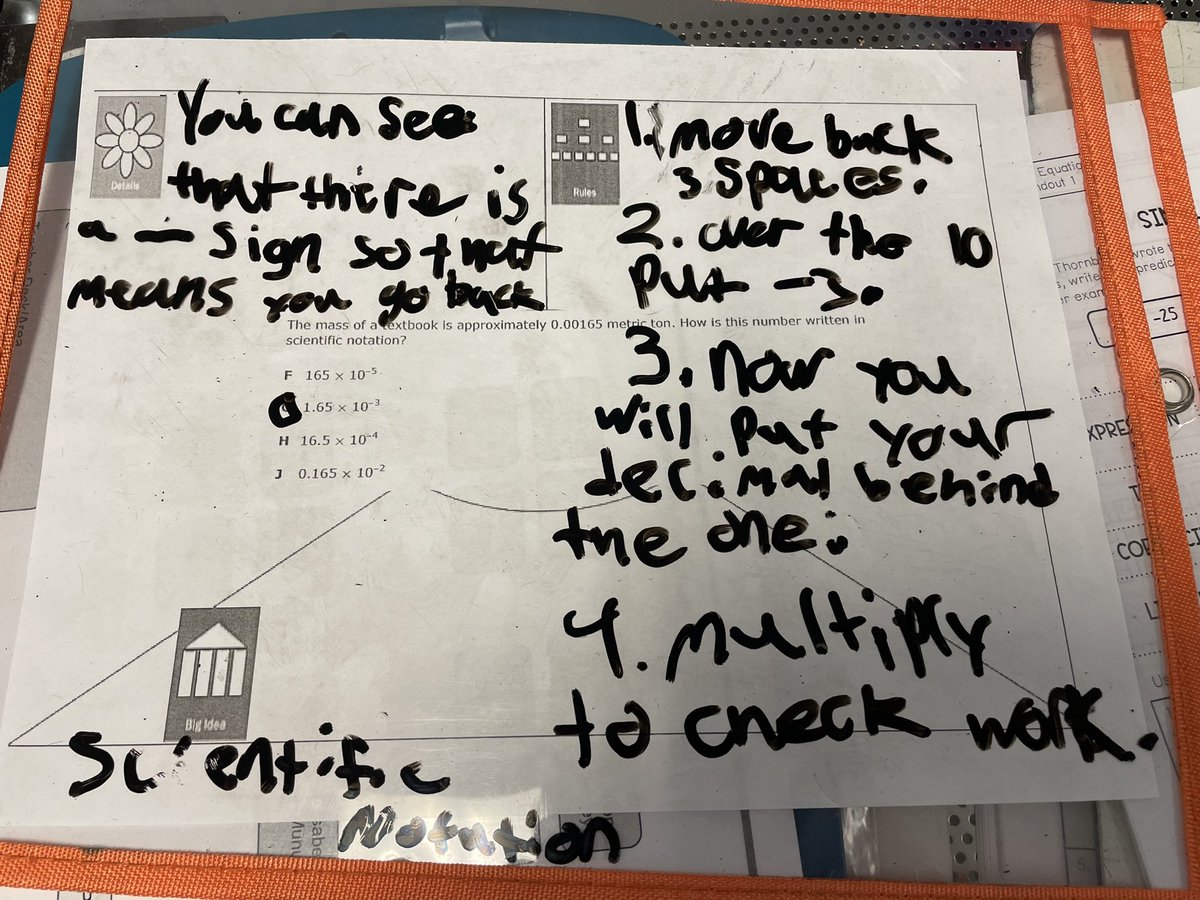 You can see
that there is
a — sign so that
means you go back
Details
1. move back
3 spaces.
2. over the 10
put -3.
Rules
3. Now you
will put your
decimal behind
the one.
4. multiply
to check work.
The mass of a textbook is approximately 0.00165 metric ton. How is this number written in
scientific notation?
F 165 × 10⁻⁵
1.65 × 10⁻³
H 16.5 × 10⁻⁴
J 0.165 × 10⁻²
Big Idea
Scientific
Notation
Equatio
ndout 1
SIM
Thornb
wrote
s, write
predic
er exam
-25
XPRE
N
COE